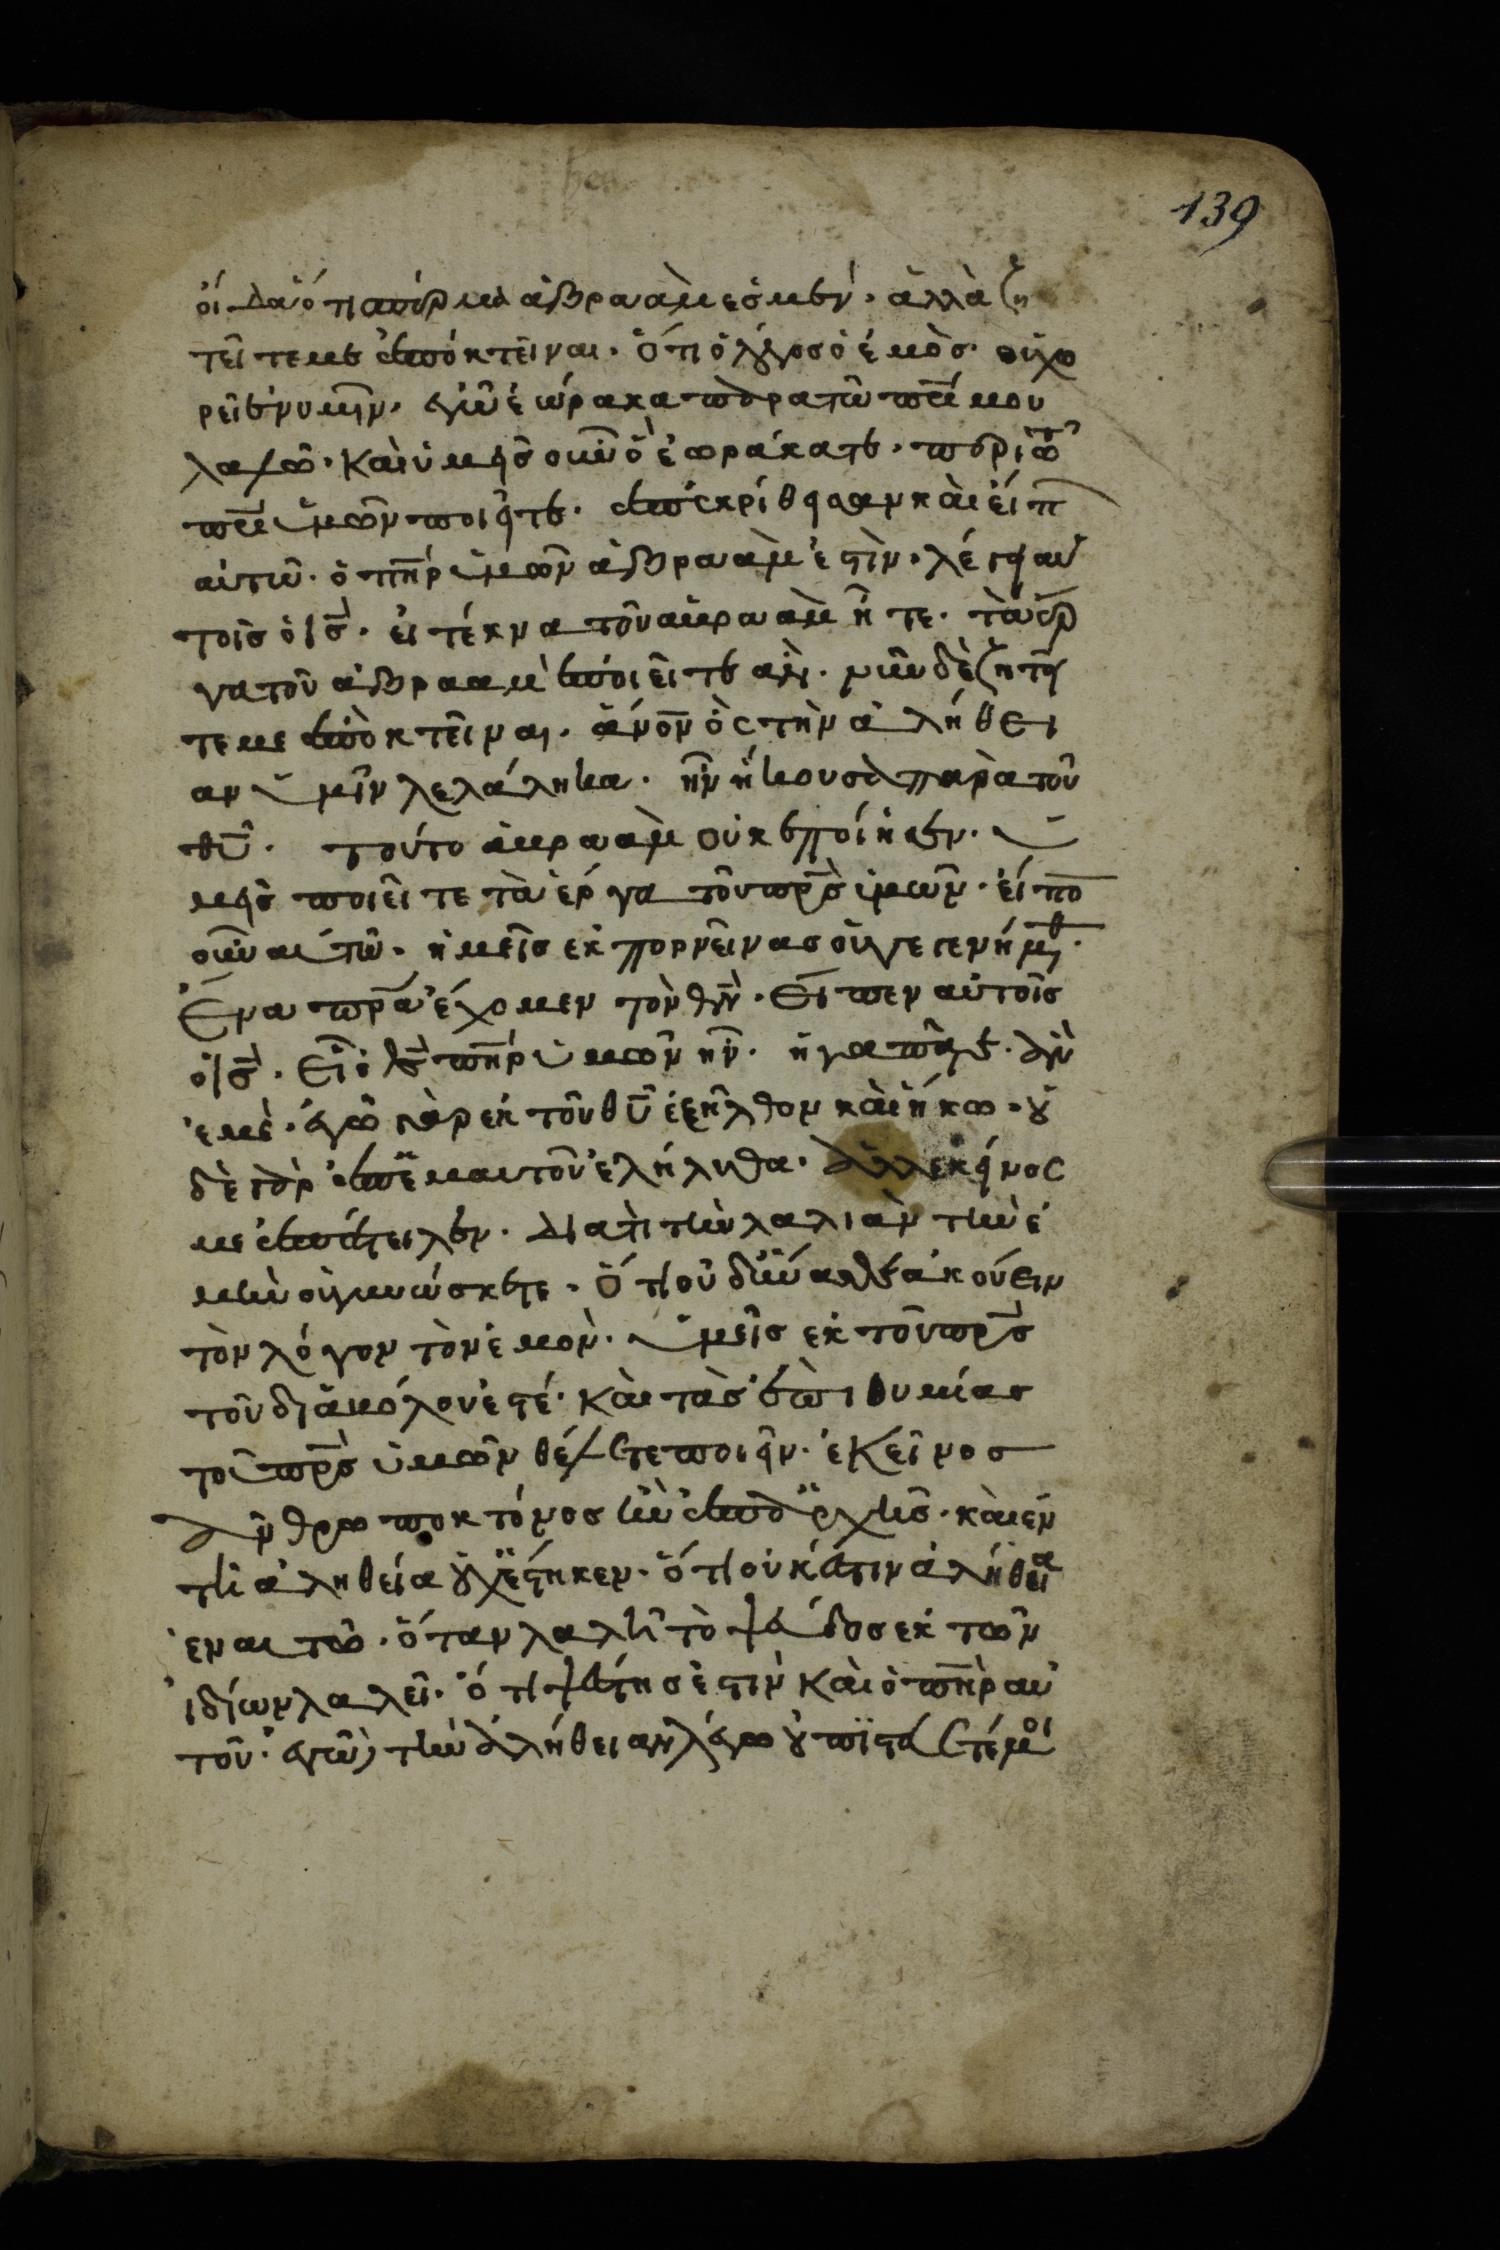 139
οἶδα ὅτι σπέρμα ἀβραὰμ ἐσμέν. ἀλλὰ ζη
τεῖτε με ἀποκτεῖναι. ὅτι ὁ λόγος ὁ ἐμὸς οὐ χω
ρεῖ ἐν ὑμῖν. ἐγὼ ἑώρακα παρὰ τῶ πρί μου
λαλῶ. καὶ ὑμεῖς οὖν ὃ ἑωράκατε. παρὰ τῶ
πρὶ ὑμῶν ποιεῖτε. ἀπεκρίθησαν καὶ εἶπ
αὐτῶ. ὁ πὴρ ὑμῶν ἀβραὰμ ἐστὶν. λέγει αὐ
τοῖς ὁ ις. εἰ τέκνα τοῦ αβραὰμ ἦτε. τὰ ἔρ
γα τοῦ ἀβραὰμ ἐποιεῖτε ἂν. νῦν δὲ ζητεῖ
τε με ἀποκτεῖναι. ἄνον ὃς τὴν ἀλήθει
αν ὑμῖν λελάληκα. ἣν ἤκουσα παρὰ τοῦ
θυ. τοῦτο αβραὰμ οὐκ ἐποίησεν. ὑ
μεῖς ποιεῖτε τὰ ἔργα τοῦ πρς ὑμῶν. εἶπο
οὖν αὐτῶ. ἡμεῖς ἐκ πορνείνας οὐ γεγενήμε.
Ενα πρα ἔχομεν τὸν θν. Εἶπεν αὐτοῖς
ὁ ις. Εἰ ὁ θς πὴρ ὑμῶν ἦν. ἠγαπᾶτε ἂν
ἐμὲ. ἐγὼ γὰρ ἐκ τοῦ θυ ἐξῆλθον καὶ ἥκω. οὐ
δὲ γὰρ ἀπ ἐμαυτοῦ ἐλήλυθα. ἀλλ ἐκεῖνος
με ἀπέστειλεν. Διατὶ τὴν λαλιὰν τὴν ἐ
μὴν οὐ γινώσκετε. Ὅτι οὐ δύνασθε ἀκούειν
τὸν λόγον τὸν ἐμὸν. ὑμεῖς ἐκ τοῦ πρς
τοῦ διαβόλου ἐστέ. καὶ τὰς ἐπιθυμίας
τοῦ πρς ὑμῶν θέλετε ποιεῖν. ἐκεῖνος
ἀνθρωποκτόνος ἦν ἀπ ἀρχῆς. καὶ ἐν
τῆ ἀληθεία οὐχ ἕστηκεν. ὅτι οὐκ ἔστιν ἀλήθεια
ἐν αὐτῶ. ὅταν λαλῆ τὸ ψεῦδος ἐκ τῶν
ἰδίων λαλεῖ. ὅτι ψεύστης ἐστὶν καὶ ὁ πὴρ αὐ
τοῦ. ἐγὼ τὴν ἀλήθειαν λέγω οὐ πιστεύετέ μοι